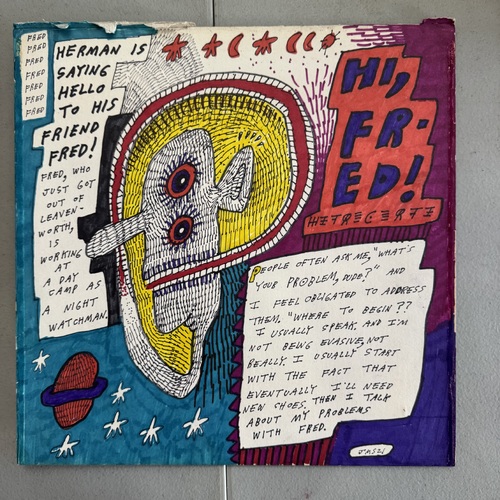 FRED
FRED
FRED
FRED
FRED
FRED
FRED
HERMAN IS
SAYING
HELLO
TO HIS
FRIEND
FRED!
FRED, WHO
JUST GOT
OUT OF
LEAVEN-
WORTH,
IS
WORKING
AT
A DAY
CAMP AS
A NIGHT
WATCHMAN.
HI,
FR-
ED!
PEOPLE OFTEN ASK ME, "WHAT'S
YOUR PROBLEM, DUDE?" AND
I FEEL OBLIGATED TO ADDRESS
THEM. "WHERE TO BEGIN??
I USUALLY SPEAK, AND I'M
NOT BEING EVASIVE, NOT
REALLY. I USUALLY START
WITH THE FACT THAT
EVENTUALLY I'LL NEED
NEW SHOES. THEN I TALK
ABOUT MY PROBLEMS
WITH FRED.